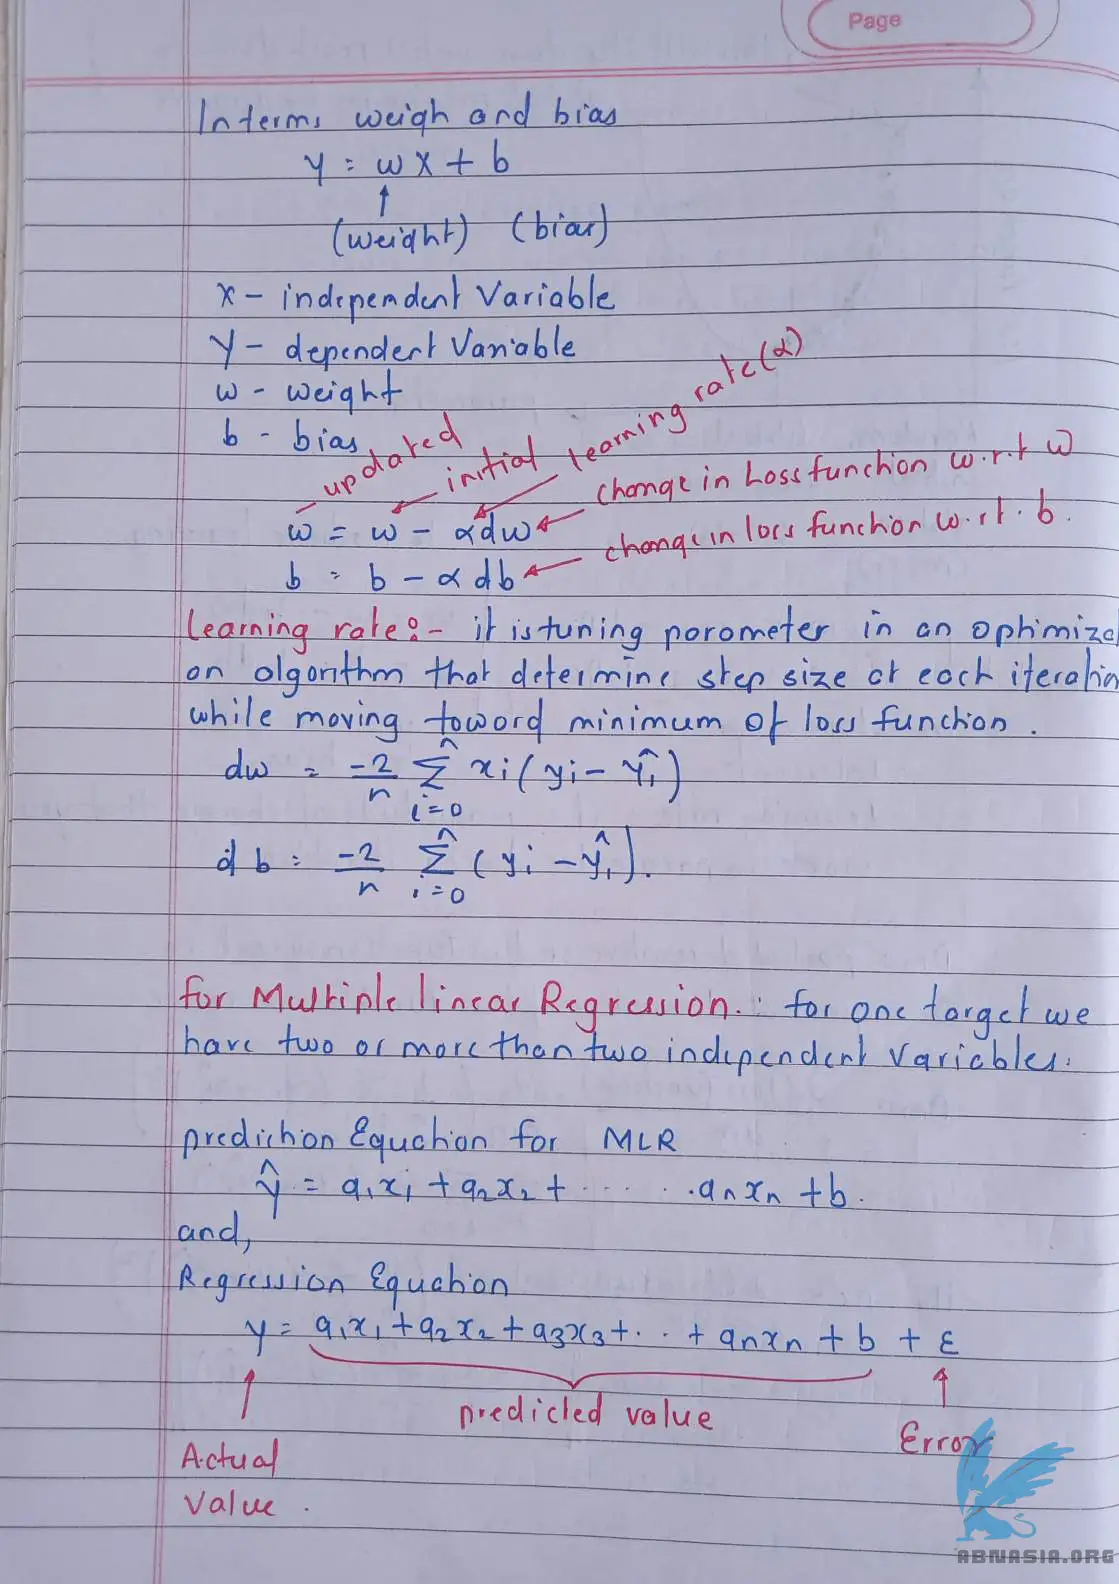 Page
In terms weigh and bias
y = wx + b
↑
(weight) (bias)
x - independent Variable
y - dependent Variable
w - weight
b - bias
updated initial learning rate (α)
w = w - αdw change in Loss function w.r.t w
b = b - αdb change in loss function w.r.t. b.
learning rate:- it is tuning parameter in an optimiza
on algorithm that determine step size at each iteration
while moving toward minimum of loss function.
dw = -2/n Σ^n_{i=0} xi(yi - ŷi)
db = -2/n Σ^n_{i=0} (yi - ŷi).
for Multiple linear Regression.: for one target we
have two or more than two independent variables.
prediction Equation for MLR
ŷ = a1x1 + a2x2 + ...... anxn + b.
and,
Regression Equation
y = a1x1 + a2x2 + a3x3 + .. + anxn + b + ε
↑ predicted value ↑
Actual Error
Value.
ABNASIA.ORG